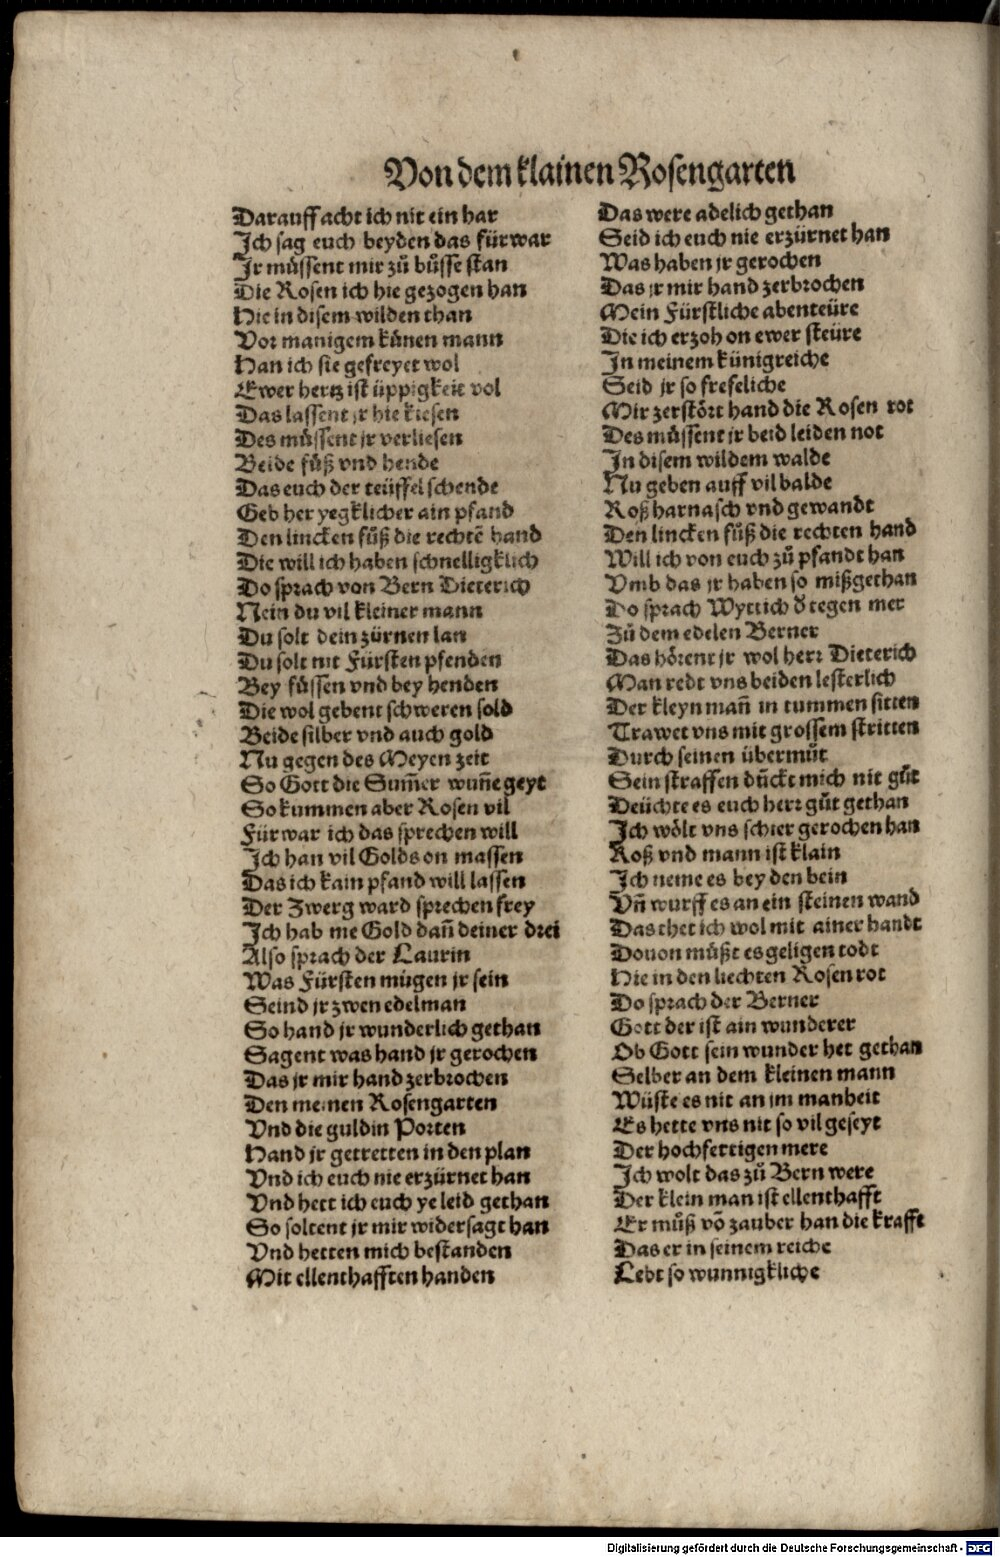 Von dem klainen Rosengarten
Darauff acht ich nit ein har
Ich sag euch beyden das fürwar
Ir müssent mir zů bůsse stan
Die Rosen ich hie gezogen han
Hie in disem wilden than
Vor manigem künen mann
Han ich sie gefreyet wol
Ewer hertz ist üppigkeit vol
Das lassent jr hie kiesen
Des müssent jr verliesen
Beide füß vnd hende
Das euch der teüffel schende
Geb her yegklicher ain pfand
Den lincken fůß die rechtē hand
Die will ich haben schnelligklich
Do sprach von Bern Dieterich
Nein du vil kleiner mann
Du solt dein zürnen lan
Du solt nit Fürsten pfenden
Bey füssen vnd bey henden
Die wol gebent schweren sold
Beide silber vnd auch gold
Nu gegen des Meyen zeit
So Gott die Sum̄er wun̄e geyt
So kummen aber Rosen vil
Fürwar ich das sprechen will
Ich han vil Golds on massen
Das ich kain pfand will lassen
Der Zwerg ward sprechen frey
Ich hab me Gold dan̄ deiner drei
Also sprach der Laurin
Was Fürsten mügen jr sein
Seind jr zwen edelman
So hand jr wunderlich gethan
Sagent was hand jr gerochen
Das jr mir hand zerbrochen
Den meinen Rosengarten
Vnd die guldin Porten
Hand jr getretten in den plan
Vnd ich euch nie erzürnet han
Vnd hett ich euch ye leid gethan
So soltent jr mir widersagt han
Vnd hetten mich bestanden
Mit ellenthafften handen
Das were adelich gethan
Seid ich euch nie erzürnet han
Was haben jr gerochen
Das jr mir hand zerbrochen
Mein Fürstliche abenteüre
Die ich erzoh on ewer steüre
In meinem künigreiche
Seid jr so frefeliche
Mir zerstört hand die Rosen rot
Des müssent jr beid leiden not
In disem wildem walde
Nu geben auff vil balde
Roß harnasch vnd gewandt
Den lincken fůß die rechten hand
Will ich von euch zů pfandt han
Vmb das jr haben so mißgethan
Do sprach Wyttich d̄ tegen mer
Zů dem edelen Berner
Das hörent jr wol herr Dieterich
Man redt vns beiden lesterlich
Der kleyn man̄ in tummen sitten
Trawet vns mit grossem stritten
Durch seinen übermůt
Sein straffen dückt mich nit gůt
Deüchte es euch herr gůt gethan
Ich wölt vns schier gerochen han
Roß vnd mann ist klain
Ich neme es bey den bein
Vn̄ wurff es an ein steinen wand
Das thet ich wol mit ainer handt
Douon müßt es geligen todt
Hie in den liechten Rosen rot
Do sprach der Berner
Gott der ist ain wunderer
Ob Gott sein wunder het gethan
Selber an dem kleinen mann
Wüste es nit an im manheit
Es hette vns nit so vil geseyt
Der hochfertigen mere
Ich wolt das zů Bern were
Der klein man ist ellenthafft
Er můß vō zauber han die krafft
Das er in seinem reiche
Lebt so wunnigkliche
Digitalisierung gefördert durch die Deutsche Forschungsgemeinschaft - DFG